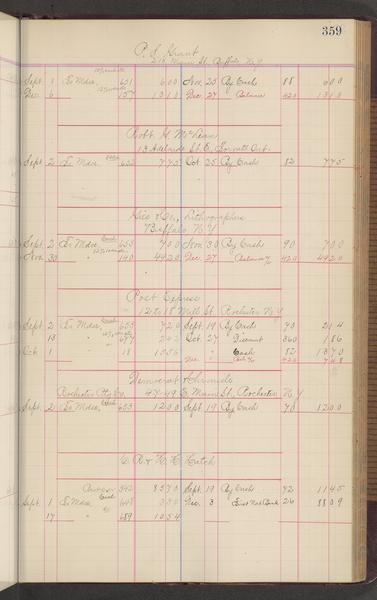 359
P. S. Grant
Main St. Buffalo N.Y.
Sept. To Mdse. 631 600 Nov. 25 By Cash 88 600
Dec 6 " 157 1310 Dec 27 " Balance 420 1310
Robt. H.
13 Adelaide St. E. Toronto Ont.
Sept. 2 To Mdse. 632 775 Oct. 25 By Cash 82 775
Gies & Co., Lithographers
Buffalo N.Y.
Sept. 2 To Mdse. 633 700 Nov. 30 By Cash 90 700
Nov. 30 " 140 4920 Dec. 27 " Balance 420 4920
Post Express
Mill St. Rochester N.Y.
Sept. 2 To Mdse. 633 720 Sept. 19 By Cash 70 214
13 " 677 242 Oct. 27 " Discount 360 186
Oct. 1 " 18 1056 " " Cash 82 1370
Dec
Democrat & Chronicle
Rochester Ptg. Co. 47-49 E. Main St., Rochester N.Y.
Sept. 2 To Mdse. 633 1200 Sept. 19 By Cash 70 1200
C. R. & H. H. Hatch
342 8370 Sept. 19 By Cash 72 1145
Sept. 1 To Mdse. 648 Dec. 3 " First Nat Bank 26 8809
17 " 689 1054